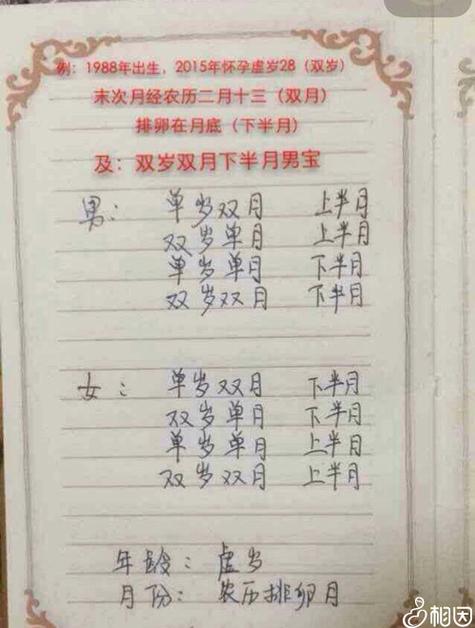 例：1988年出生，2015年怀孕虚岁28（双岁）
末次月经农历二月十三（双月）
排卵在月底（下半月）
及：双岁双月下半月男宝
男： 单岁双月 上半月
双岁单月 上半月
单岁单月 下半月
双岁双月 下半月
女： 单岁双月 下半月
双岁单月 下半月
单岁单月 上半月
双岁双月 上半月
年龄：虚岁
月份：农历排卵月
相因